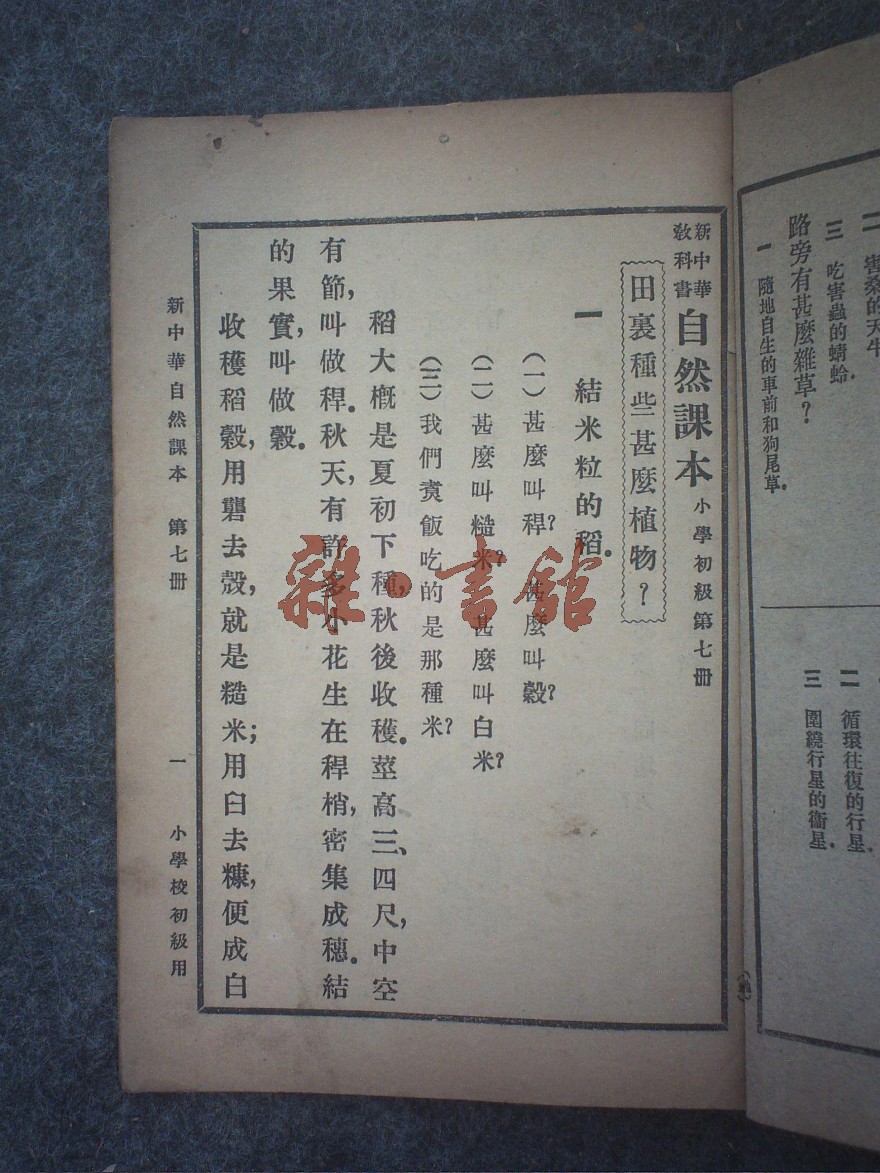 二 害桑的天牛
三 吃害蟲的蜻蛉.
路旁有甚麼雜草？
一 隨地自生的車前和狗尾草.
二 循環往復的行星.
三 圍繞行星的衞星.
新中華
教科書
自然課本 小學初級第七册
田裏種些甚麼植物？
一 結米粒的稻.
(一)甚麼叫稈？甚麼叫穀？
(二)甚麼叫糙米？甚麼叫白米？
(三)我們煑飯吃的是那種米？
稻大槪是夏初下種,秋後收穫.莖高三、四尺,中空
有節,叫做稈.秋天,有許多小花生在稈梢,密集成穗.結
的果實,叫做穀.
收穫稻穀,用礱去殼,就是糙米;用臼去糠,便成白
新中華自然課本 第七册 一 小學校初級用
雜·書館